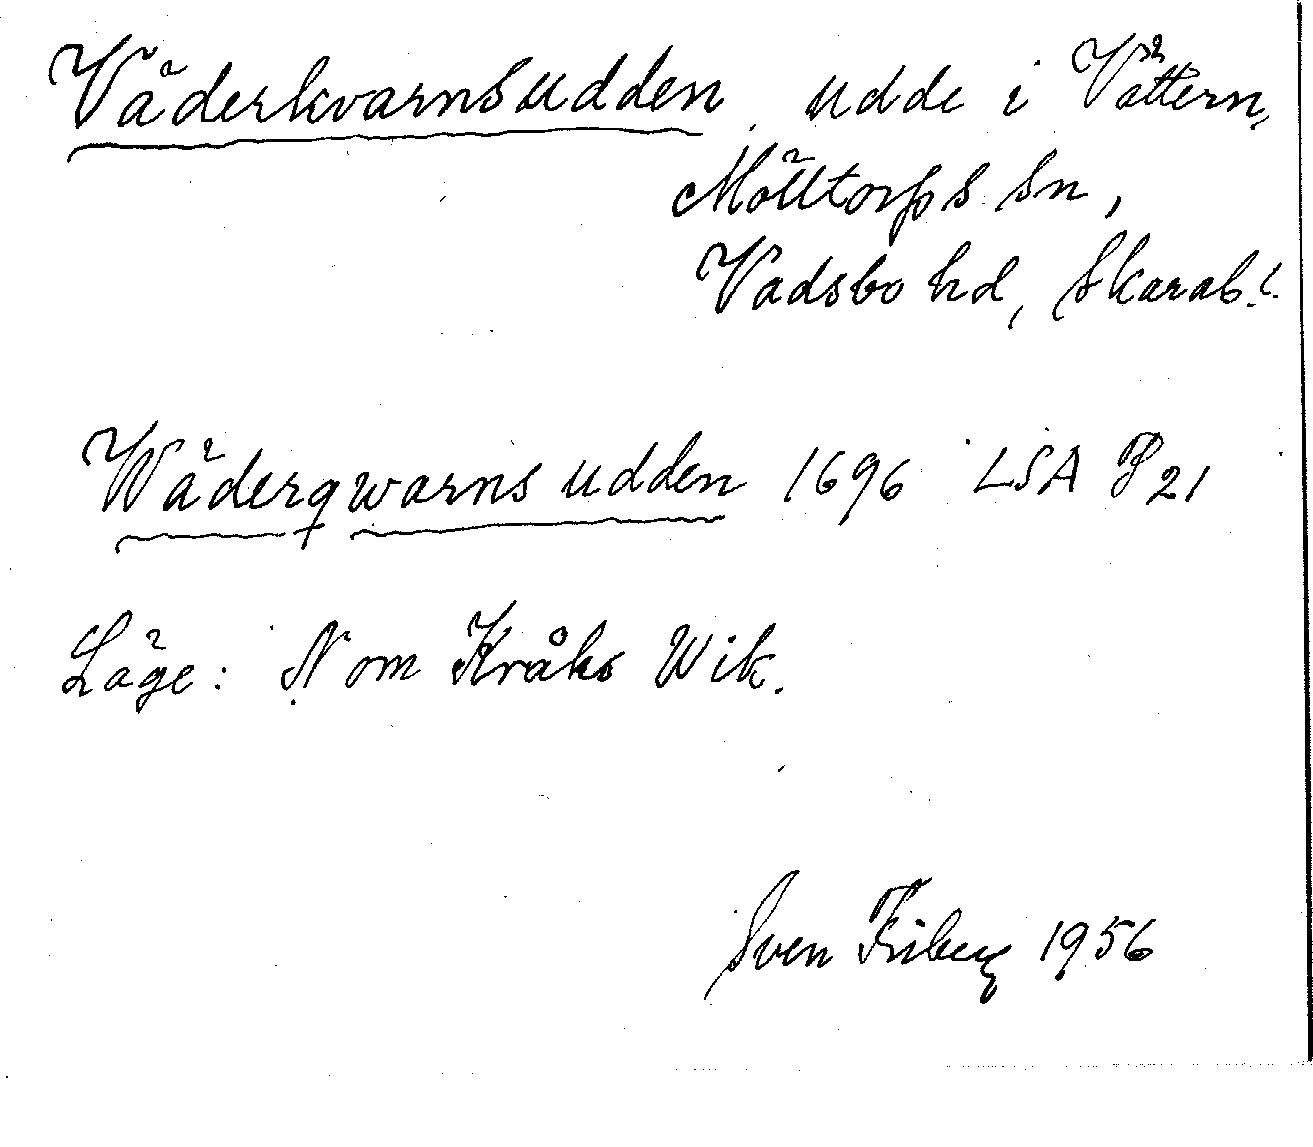 Väderkvarnsudden, udde i Vättern,
Mölltorps sn,
Vadsbo hd, Skarab.l.
Wäderqwarns udden 1696 LSA P21
Läge: N om Kråks Wik.
Sven Friberg 1956